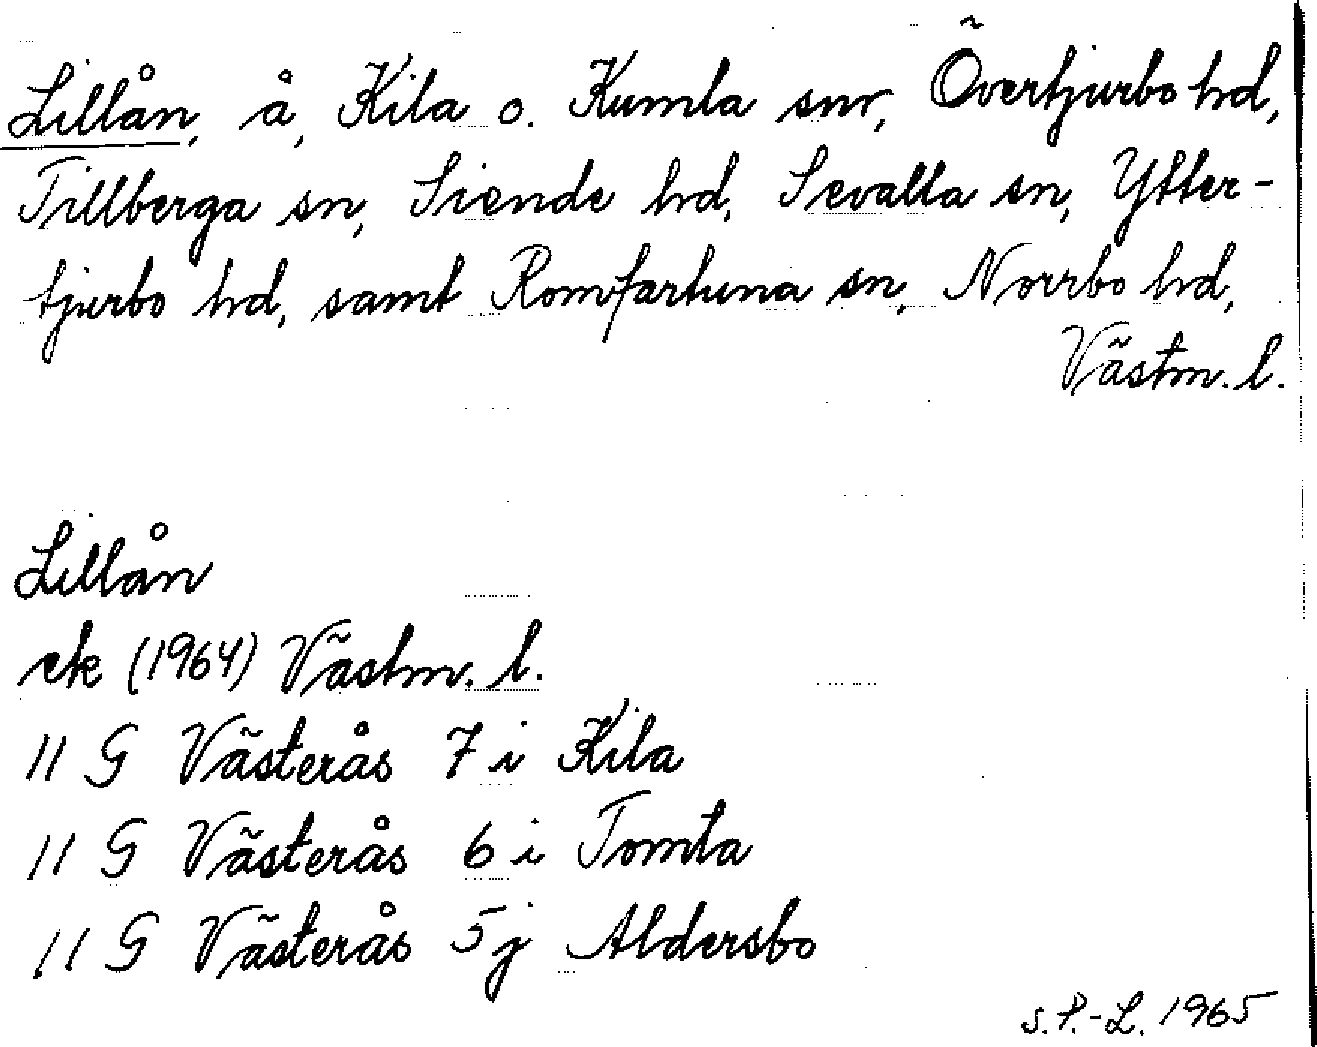 Lillån, å, Kila o. Kumla snr, Övertjurbo hd,
Tillberga sn, Siende hd, Sevalla sn, Ytter-
tjurbo hd, samt Romfartuna sn, Norrbo hd,
Västm. l.
Lillån
ek (1964) Västm. l.
11 G Västerås 7 i Kila
11 G Västerås 6 i Tomta
11 G Västerås 5 j Aldersbo
S.P.-L. 1965